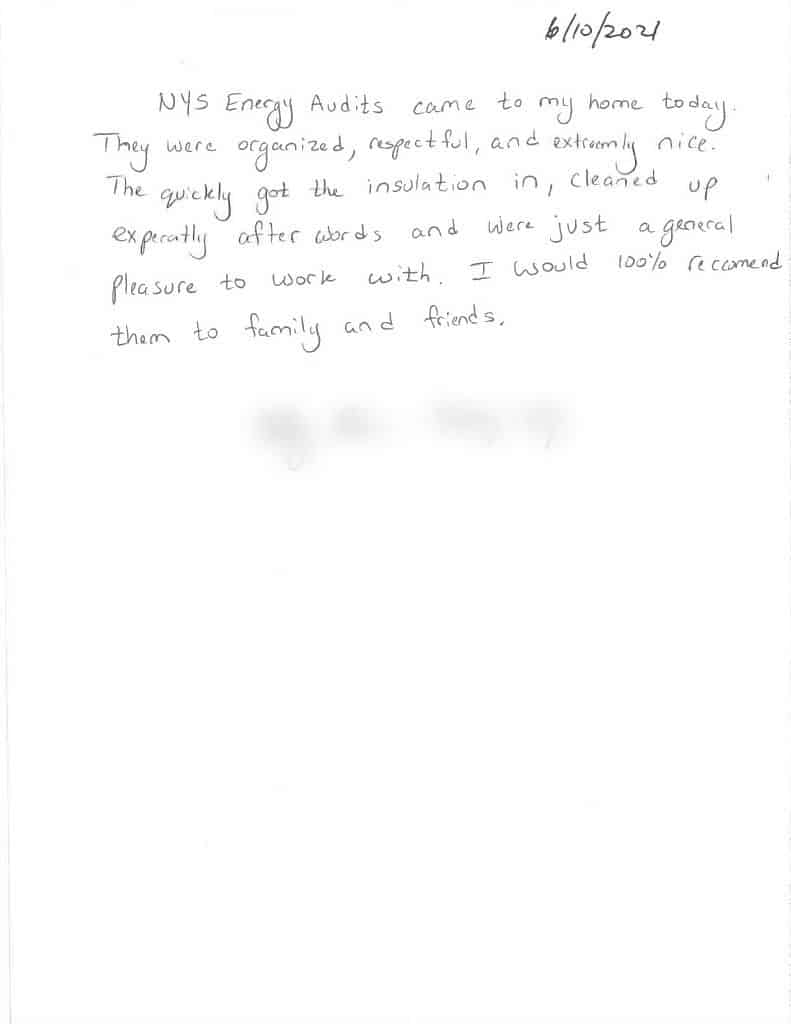 6/10/2021
NYS Energy Audits came to my home today.
They were organized, respectful, and extreemly nice.
The quickly got the insulation in, cleaned up
experatly after words and were just a general
pleasure to work with. I would 100% reccomend
them to family and friends.